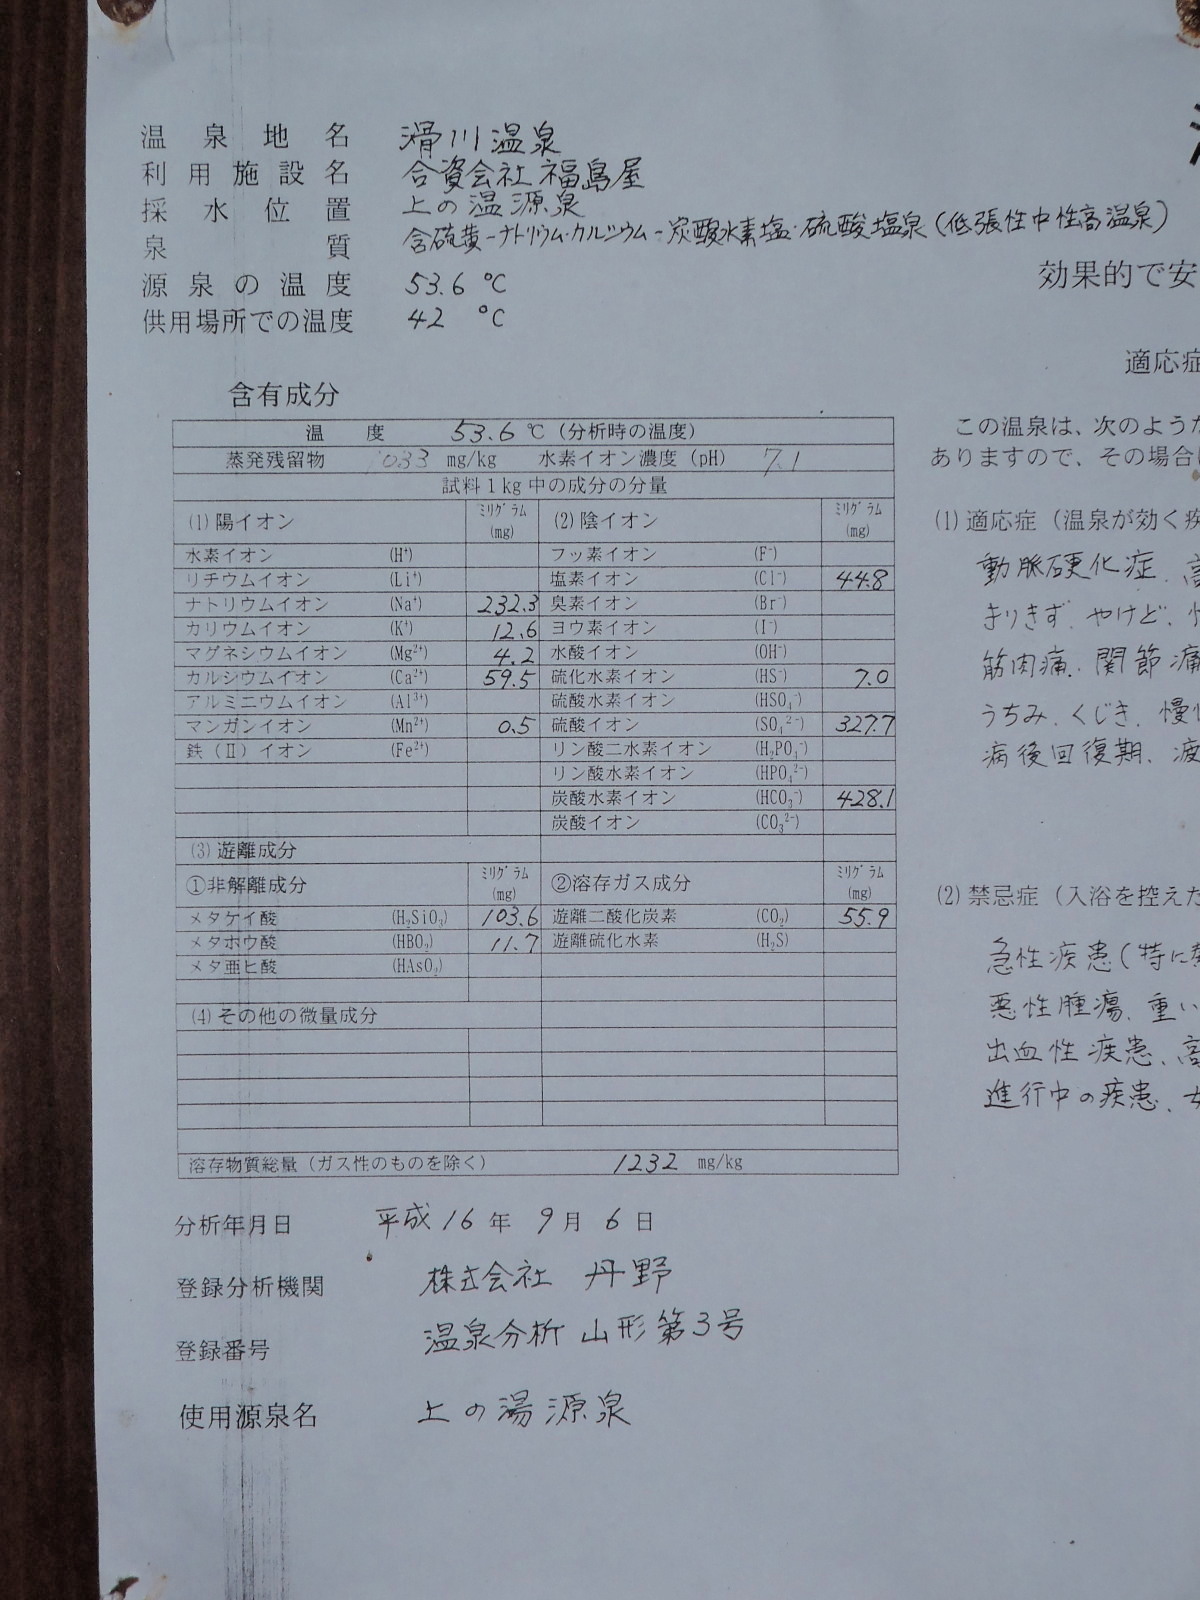 温泉地名 滑川温泉
利用施設名 合資会社 福島屋
採水位置 上の温源泉
泉質 含硫黄-ナトリウム・カルシウム-炭酸水素塩・硫酸塩泉(低張性中性高温泉)
源泉の温度 53.6 ℃
供用場所での温度 42 ℃
効果的で安
適応症
含有成分
温度 53.6 ℃ (分析時の温度)
蒸発残留物 1033 mg/kg 水素イオン濃度 (pH) 7.1
試料1kg中の成分の分量
(1) 陽イオン ミリグラム (mg) (2) 陰イオン ミリグラム (mg)
水素イオン (H⁺) フッ素イオン (F⁻)
リチウムイオン (Li⁺) 塩素イオン (Cl⁻) 44.8
ナトリウムイオン (Na⁺) 232.3 臭素イオン (Br⁻)
カリウムイオン (K⁺) 12.6 ヨウ素イオン (I⁻)
マグネシウムイオン (Mg²⁺) 4.2 水酸イオン (OH⁻)
カルシウムイオン (Ca²⁺) 59.5 硫化水素イオン (HS⁻) 7.0
アルミニウムイオン (Al³⁺) 硫酸水素イオン (HSO₄⁻)
マンガンイオン (Mn²⁺) 0.5 硫酸イオン (SO₄²⁻) 327.7
鉄(Ⅱ)イオン (Fe²⁺) リン酸二水素イオン (H₂PO₄⁻)
リン酸水素イオン (HPO₄²⁻)
炭酸水素イオン (HCO₃⁻) 428.1
炭酸イオン (CO₃²⁻)
(3) 遊離成分
①非解離成分 ミリグラム (mg) ②溶存ガス成分 ミリグラム (mg)
メタケイ酸 (H₂SiO₃) 103.6 遊離二酸化炭素 (CO₂) 55.9
メタホウ酸 (HBO₂) 11.7 遊離硫化水素 (H₂S)
メタ亜ヒ酸 (HAsO₂)
(4) その他の微量成分
溶存物質総量(ガス性のものを除く) 1232 mg/kg
分析年月日 平成16年 9月 6日
登録分析機関 株式会社 丹野
登録番号 温泉分析 山形第3号
使用源泉名 上の湯源泉
この温泉は、次のような
ありますので、その場合
(1) 適応症(温泉が効く疾
動脈硬化症、高
きりきず、やけど、
筋肉痛、関節痛
うちみ、くじき、慢性
病後回復期、疲
(2) 禁忌症(入浴を控えた
急性疾患(特に熱
悪性腫瘍、重い
出血性疾患、高
進行中の疾患、女